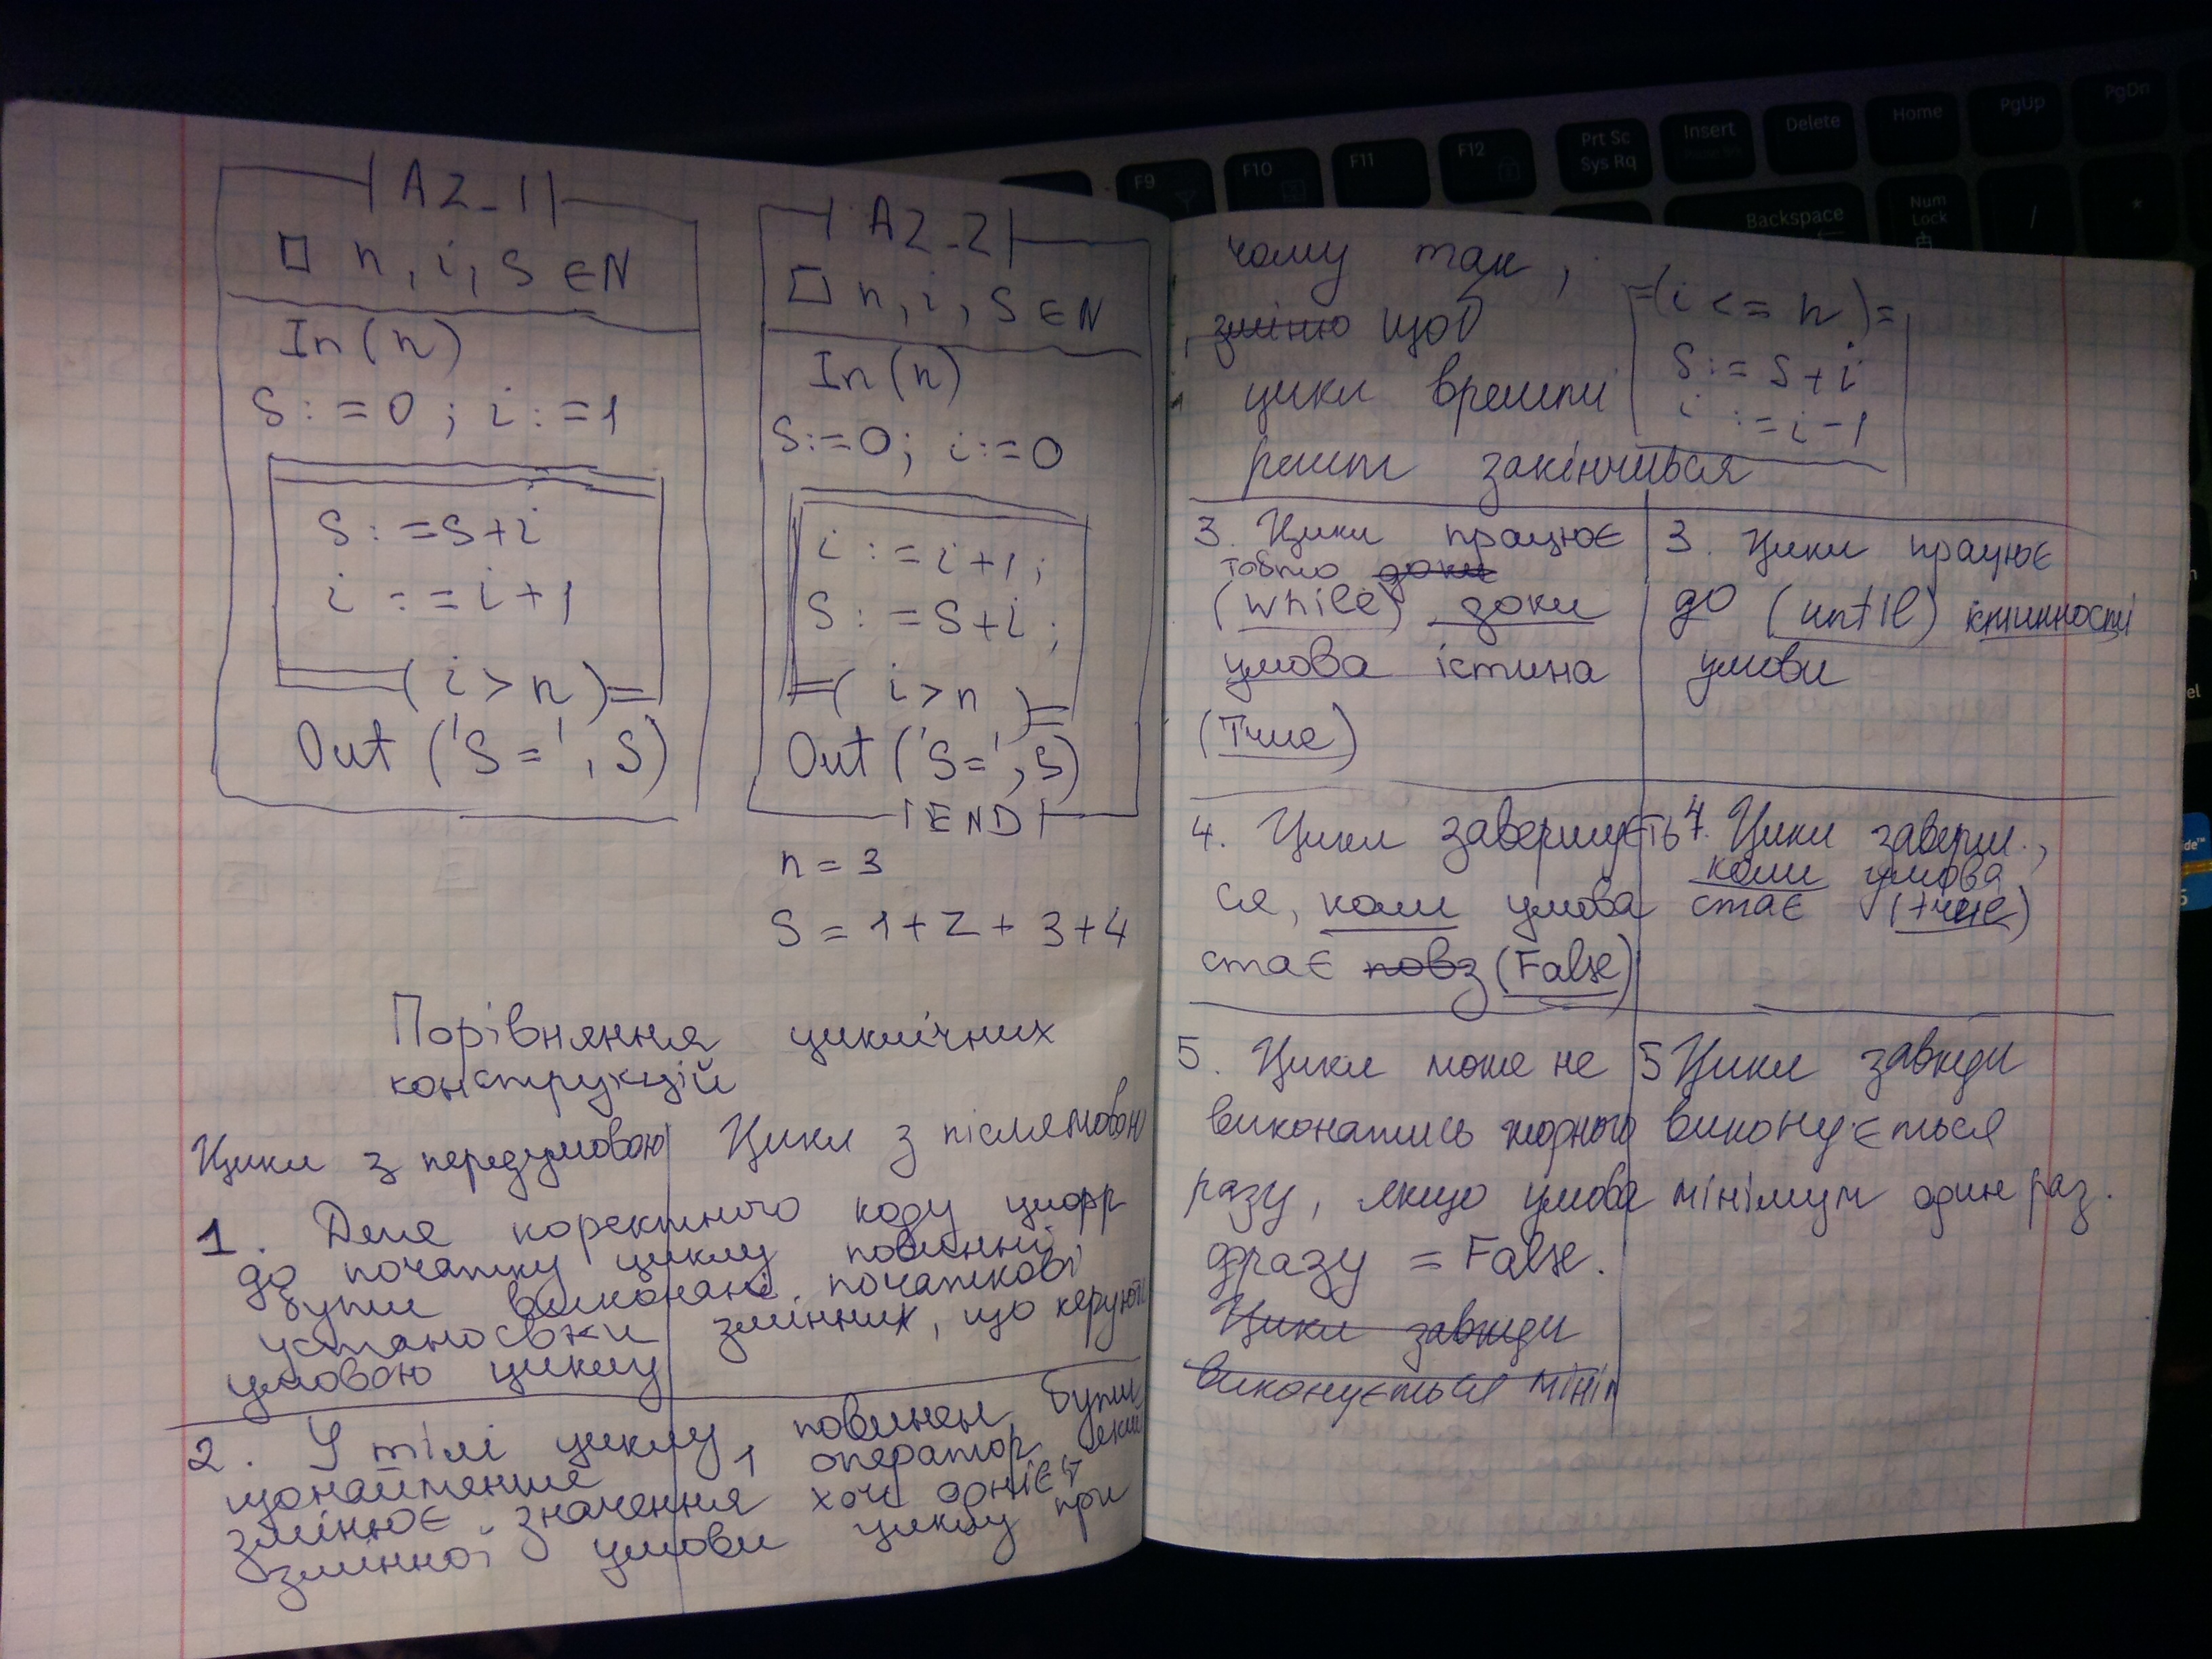 A2_1
n, i, S ∈ N
In(n)
S:=0; i:=1
S:=S+i
i:=i+1
(i>n)
Out('S=', S)
A2_2
n, i, S ∈ N
In(n)
S:=0; i:=0
i:=i+1;
S:=S+i;
(i>n)
Out('S=', S)
END
n=3
S=1+2+3+4
Порівняння циклічних
конструкцій
Цикл з передумовою
Цикл з післямовою
1. Для коректного коду
до початку циклу повинні
бути виконані початкові
установки змінних, що керують
умовою циклу
2. У тілі циклу повинен бути
щонайменше 1 оператор, який
змінює значення хоч однієї
змінної умови циклу при
чому так,
змінно щоб
цикл врешті
решт закінчився
(i<=n)
S:=S+i
i:=i-1
3. Цикл працює
тобто доки
(while) доки
умова істина
(True)
3. Цикл працює
до (until) істинності
умови
4. Цикл завершуєть
ся, коли умова
стає повз (False)
4. Цикл заверш.,
коли умова
стає (true)
5. Цикл може не
виконатись жодного
разу, якщо умова
одразу = False.
Цикл завжди
виконується мінім
5 Цикл завжди
виконується
мінімум один раз.
F9
F10
F11
F12
Prt Sc
Sys Rq
Insert
Delete
Home
PgUp
PgDn
Backspace
Num
Lock
/
*